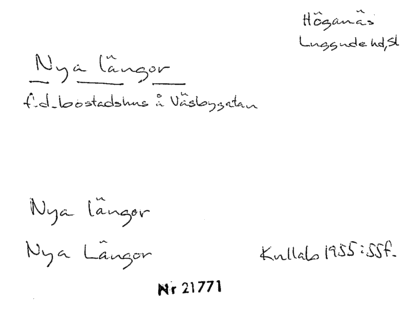 Höganäs
Luggude hd, Sk
Nya längor
f.d. bostadshus å Väsbygatan
Nya längor
Nya Längor
Kullabo 1955:55f.
Nr 21771